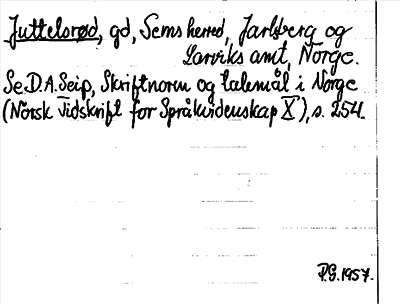 Juttelsrød, gd, Sems herred, Jarlsberg og
Larviks amt, Norge.
Se D.A. Seip, Skriftnorm og talemål i Norge
(Norsk Tidskrift for Språkvidenskap X), s. 254.
P.G. 1957.